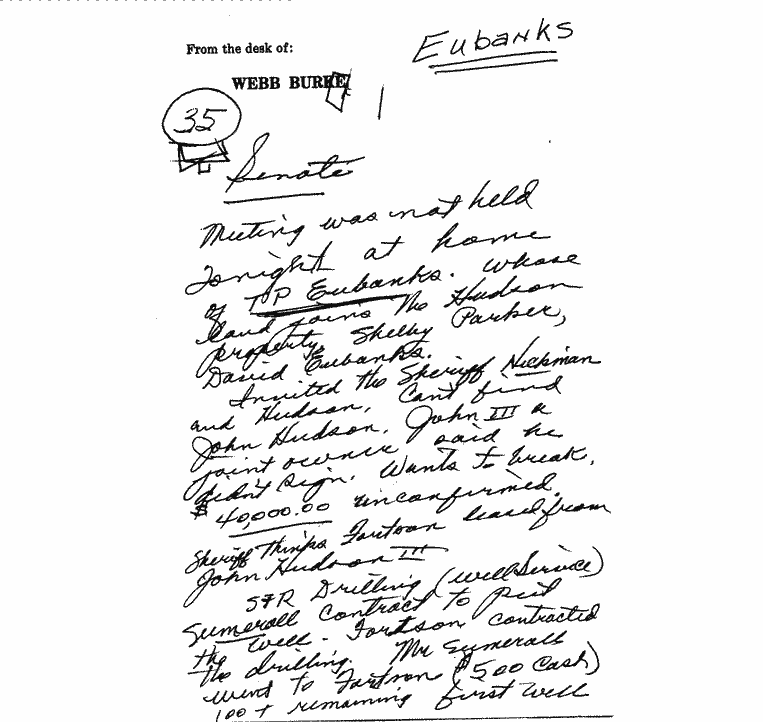 Eubanks
From the desk of:
WEBB BURKE
35
Senate
Meeting was not held
tonight at home
of TP Eubanks. whose
land joins the Hudson
property, Shelby Parker,
David Eubanks.
Invited the Sheriff Hickman
and Hudson. Can't find
John Hudson. John III a
joint owner said he
didn't sign. Wants to break.
$40,000.00 unconfirmed.
Sheriff Thinks Fortson leased from
John Hudson III
S&R Drilling (Well Service)
Sumerall Contract to put
the well - Fortson contracted
the drilling. Mr Sumerall
went to Fortson ($500 Cash)
100 + remaining first well